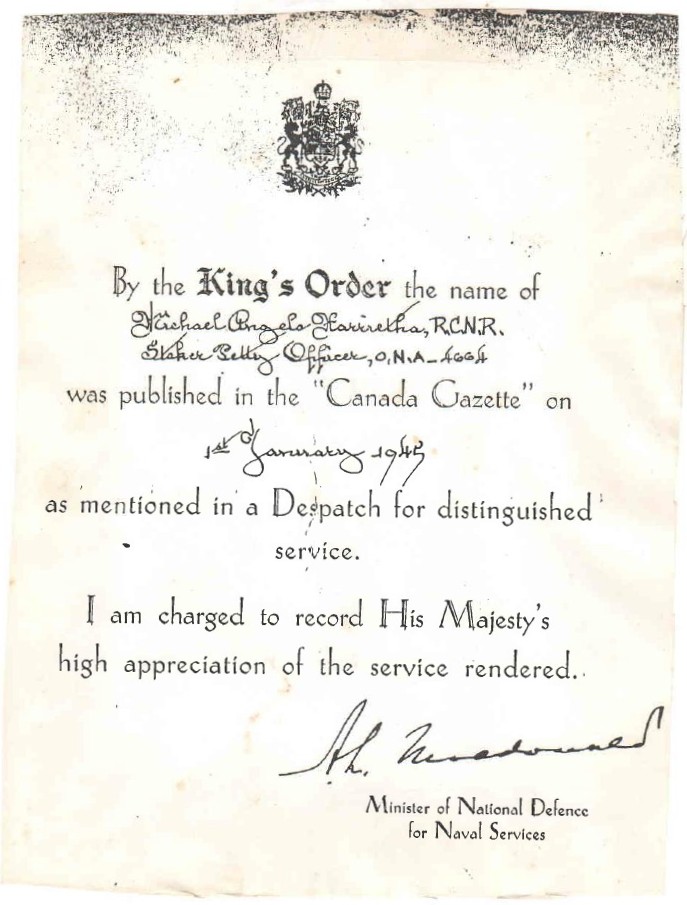 By the King's Order the name of
Michael Angelo, R.C.N.R.
Stoker Petty Officer, O.N.A-4664
was published in the "Canada Gazette" on
1st January 1945
as mentioned in a Despatch for distinguished
service.
I am charged to record His Majesty's
high appreciation of the service rendered.
Macdonald
Minister of National Defence
for Naval Services